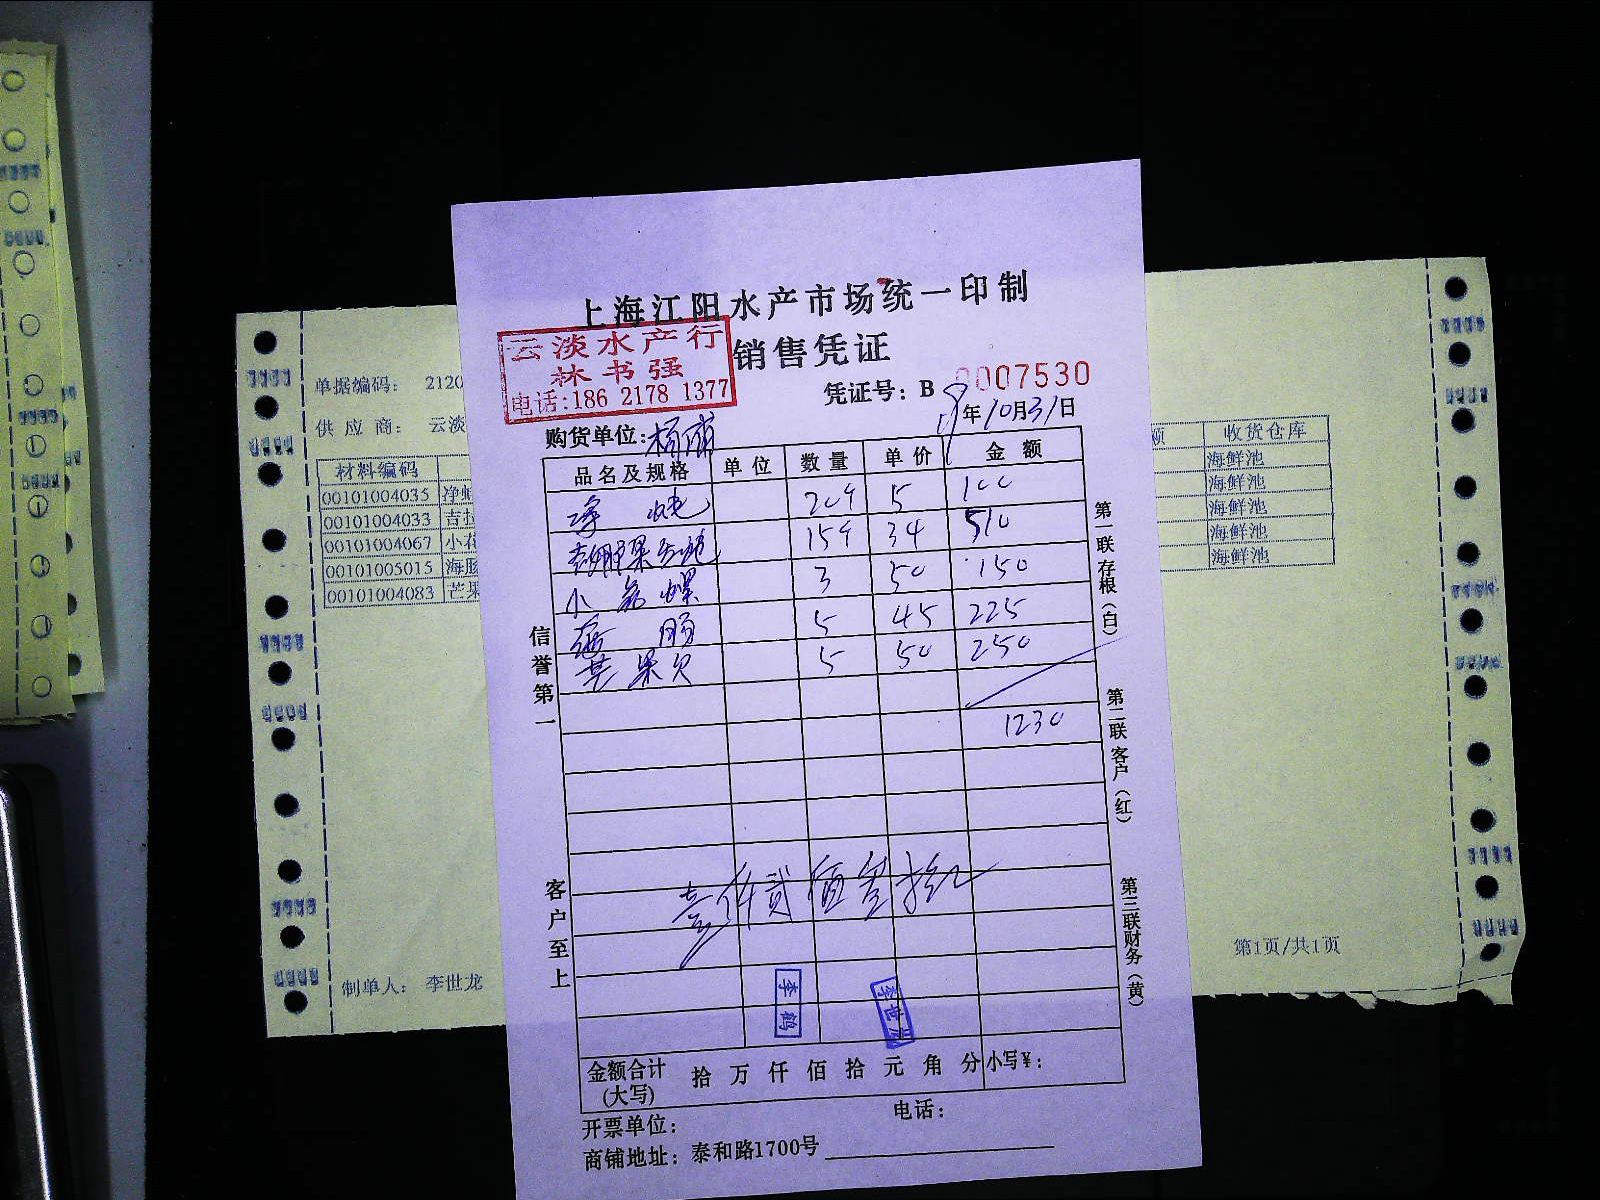 上海江阳水产市场统一印制
销售凭证
云淡水产行
林书强
电话:186 2178 1377
凭证号: B 0007530
年10月31日
购货单位:
品名及规格 单位 数量 单价 金额
净 蛏 20斤 5 100
15斤 34 510
小 花 螺 3 50 150
海 肠 5 45 225
芒果贝 5 50 250
1230
壹仟贰佰叁拾元
李鹤
李世龙
金额合计(大写) 拾 万 仟 佰 拾 元 角 分 小写¥:
开票单位: 电话:
商铺地址: 泰和路1700号
信誉第一
客户至上
第一联存根(白)
第二联客户(红)
第三联财务(黄)
单据编码: 2120
供应商: 云淡
材料编码
00101004035 净
00101004033 吉
00101004067 小花
00101005015 海肠
00101004083 芒果
额 收货仓库
海鲜池
海鲜池
海鲜池
海鲜池
海鲜池
制单人: 李世龙
第1页/共1页